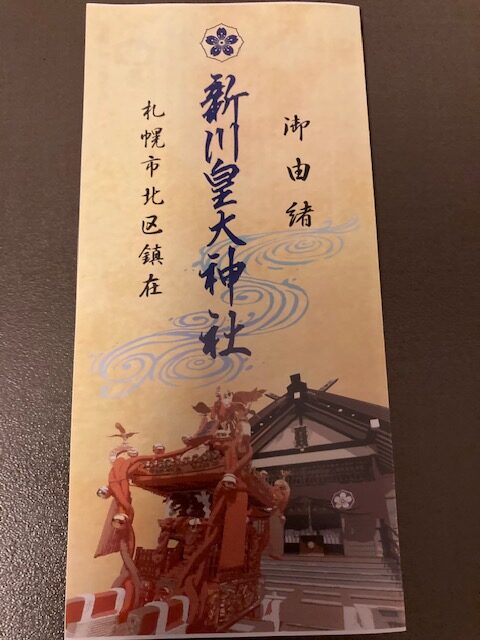 御由緒
新川皇大神社
札幌市北区鎮在